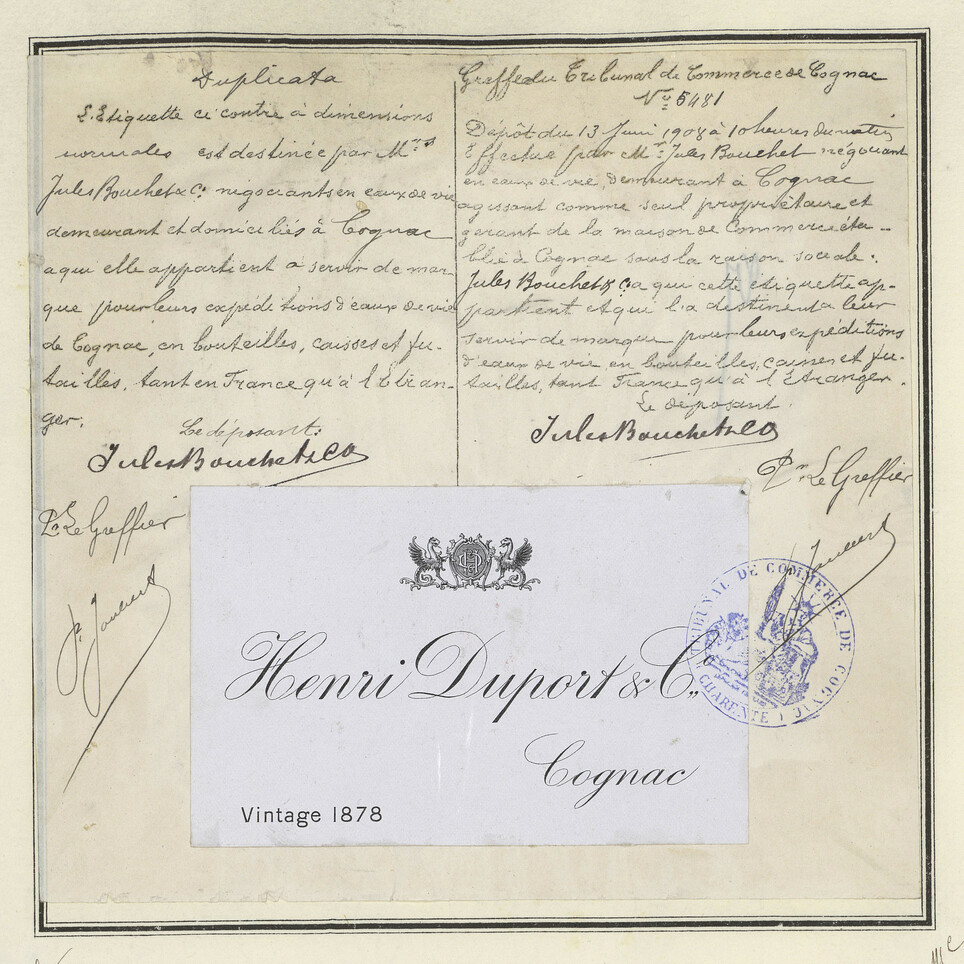 Duplicata
L'Etiquette ci contre à dimensions
normales est destinée par Mrs
Jules Bouchet & Co négociants en eaux de vie
demeurant et domiciliés à Cognac
a qui elle appartient à servir de mar-
que pour leurs expéditions d'eaux de vie
de Cognac, en bouteilles, caisses et fu-
tailles, tant en France qu'à l'Etran-
ger.
Le déposant:
Jules Bouchet & Co
Pr Le Greffier
Greffe du Tribunal de Commerce de Cognac
No 5481
Dépôt du 13 Juin 1908 à 10 heures du matin
Effectué par Mr Jules Bouchet négociant
en eaux de vie, demeurant à Cognac
agissant comme seul propriétaire et
gerant de la maison de Commerce éta-
blie à Cognac sous la raison sociale:
Jules Bouchet & Co a qui cette étiquette ap-
partient et qui l'a destinent a leur
servir de marque pour leurs expéditions
d'eaux de vie en bouteilles, caisses et fu-
tailles, tant France qu'à l'Etranger.
Le déposant.
Jules Bouchet & Co
Pr Le Greffier
Henri Duport & Co
Cognac
Vintage 1878
TRIBUNAL DE COMMERCE DE COGNAC
CHARENTE